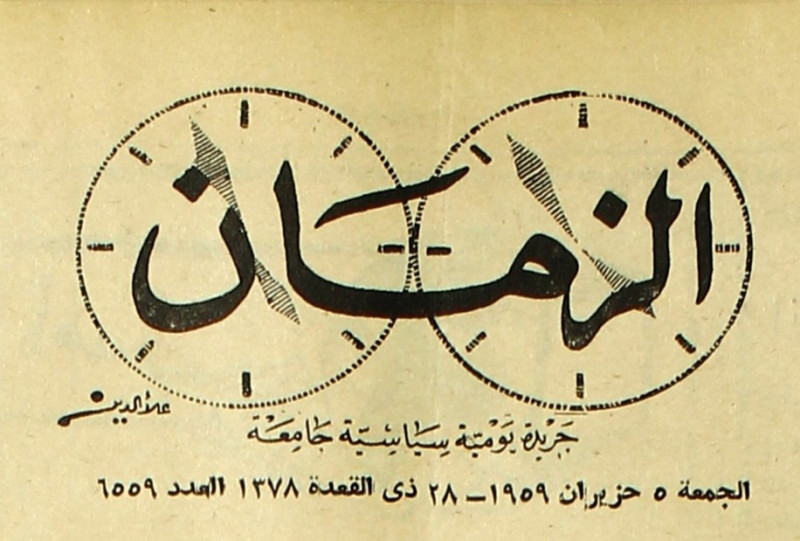 الزمان
علاء الدين
جَريدة يَوْميّة سِيَاسِيّة جَامِعَة
الجمعة ٥ حزيران ١٩٥٩ – ٢٨ ذى القعدة ١٣٧٨ العدد ٦٥٥٩